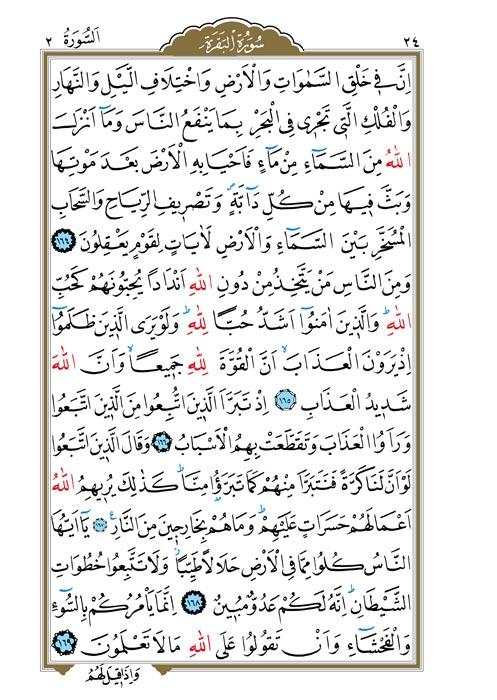 ٢٤ سُورَةُ الْبَقَرَةِ اَلسُّورَةُ ٢
اِنَّ ف۪ي خَلْقِ السَّمٰوَاتِ وَالْاَرْضِ وَاخْتِلَافِ الَّيْلِ وَالنَّهَارِ
وَالْفُلْكِ الَّت۪ي تَجْر۪ي فِي الْبَحْرِ بِمَا يَنْفَعُ النَّاسَ وَمَٓا اَنْزَلَ
اللّٰهُ مِنَ السَّمَٓاءِ مِنْ مَٓاءٍ فَاَحْيَا بِهِ الْاَرْضَ بَعْدَ مَوْتِهَا
وَبَثَّ ف۪يهَا مِنْ كُلِّ دَٓابَّةٍۖ وَتَصْر۪يفِ الرِّيَاحِ وَالسَّحَابِ
الْمُسَخَّرِ بَيْنَ السَّمَٓاءِ وَالْاَرْضِ لَاٰيَاتٍ لِقَوْمٍ يَعْقِلُونَ ﴿١٦٤﴾
وَمِنَ النَّاسِ مَنْ يَتَّخِذُ مِنْ دُونِ اللّٰهِ اَنْدَاداً يُحِبُّونَهُمْ كَحُبِّ
اللّٰهِۜ وَالَّذ۪ينَ اٰمَنُٓوا اَشَدُّ حُباًّ لِلّٰهِۜ وَلَوْ يَرَى الَّذ۪ينَ ظَلَمُٓوا
اِذْ يَرَوْنَ الْعَذَابَۙ اَنَّ الْقُوَّةَ لِلّٰهِ جَم۪يعاًۙ وَاَنَّ اللّٰهَ
شَد۪يدُ الْعَذَابِ ﴿١٦٥﴾ اِذْ تَبَرَّاَ الَّذ۪ينَ اتُّبِعُوا مِنَ الَّذ۪ينَ اتَّبَعُوا
وَرَاَوُا الْعَذَابَ وَتَقَطَّعَتْ بِهِمُ الْاَسْبَابُ ﴿١٦٦﴾ وَقَالَ الَّذ۪ينَ اتَّبَعُوا
لَوْ اَنَّ لَنَا كَرَّةً فَنَتَبَرَّاَ مِنْهُمْ كَمَا تَبَرَّؤُ۫ا مِنَّاۜ كَذٰلِكَ يُر۪يهِمُ اللّٰهُ
اَعْمَالَهُمْ حَسَرَاتٍ عَلَيْهِمْۜ وَمَا هُمْ بِخَارِج۪ينَ مِنَ النَّارِ۟ ﴿١٦٧﴾ يَٓا اَيُّهَا
النَّاسُ كُلُوا مِمَّا فِي الْاَرْضِ حَلَالاً طَيِّباًۘ وَلَا تَتَّبِعُوا خُطُوَاتِ
الشَّيْطَانِۜ اِنَّهُ لَكُمْ عَدُوٌّ مُب۪ينٌ ﴿١٦٨﴾ اِنَّمَا يَأْمُرُكُمْ بِالسُّٓوءِ
وَالْفَحْشَٓاءِ وَاَنْ تَقُولُوا عَلَى اللّٰهِ مَا لَا تَعْلَمُونَ ﴿١٦٩﴾
وَاِذَا ق۪يلَ لَهُمُ